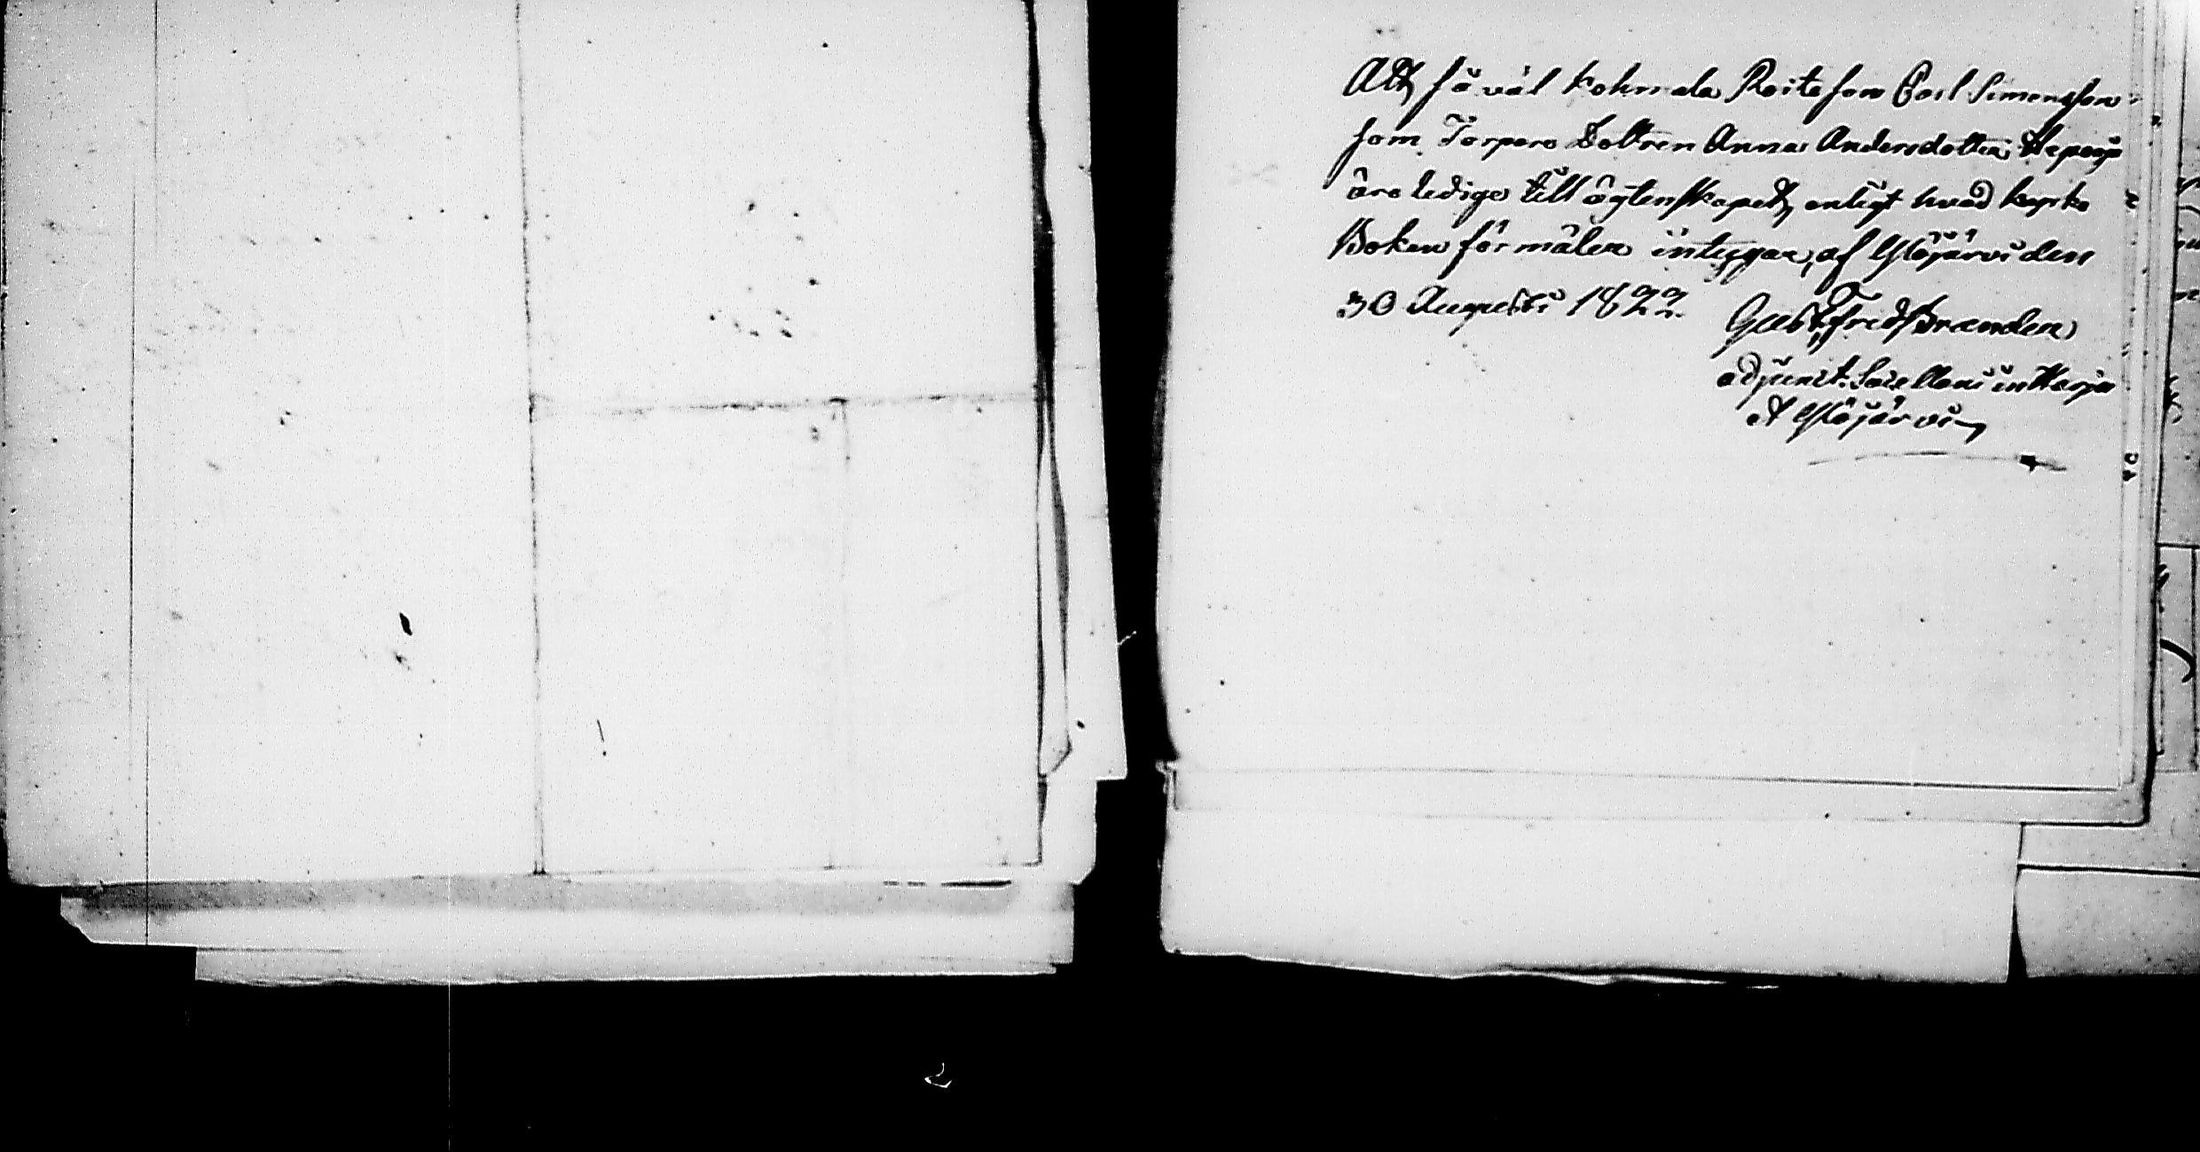 Att så väl kohmala Roite son Carl Simonsson
som Torpare Dottren Anna Andersdotter
äro ledige till ägtenskapet, enligt hvad kyrko
Boken förmäler intygar, af Ylöjärvi den
30 Augusti 1822.
Gust. Fred. Brander
adjunct. Sacellani in
et Ylöjärvi